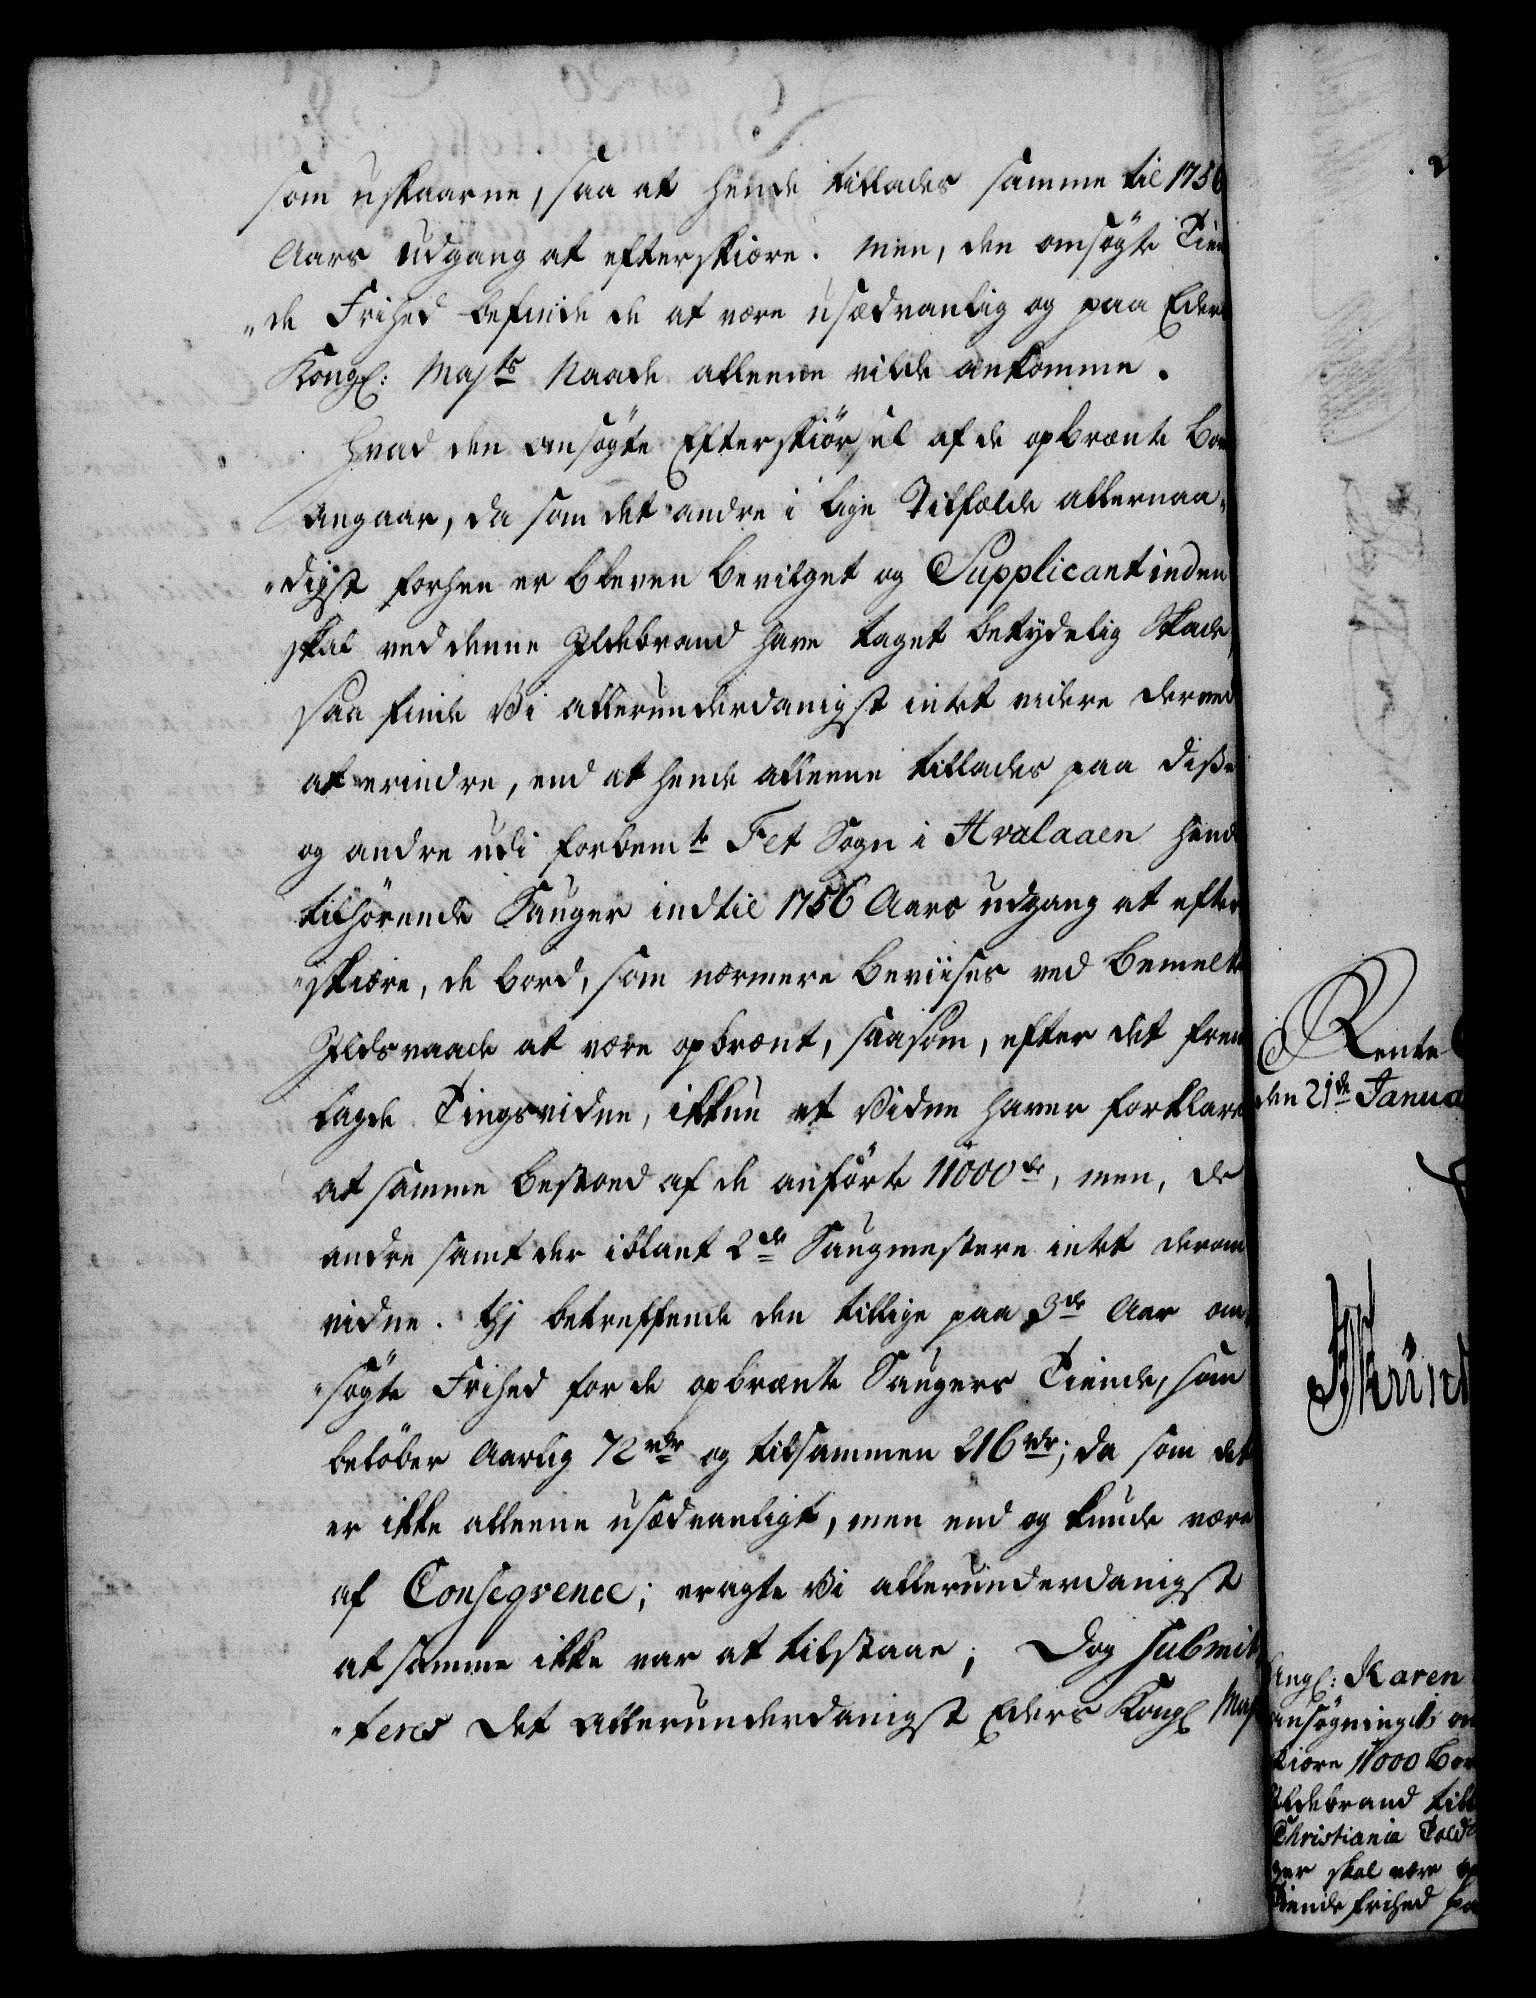 som uskaarne, saa at hende tillades samme til 1756
Aars Udgang at efterskiære. Men, den ansøgte Tien
„de Frihed befinde de at være usædvanlig og paa Eders
Kongl: Majts Naade alleene vilde ankomme.
Hvad den ansøgte Efterskiørsel af de opbrænte Bor
angaar, da som det andre i lige Tilfælde allernaa„
„digst forhen er bleven bevilget og Supplicantinden
skal ved denne Ildebrand have taget betydelig Skade,
saa finde Vi allerunderdanigst intet videre derved
at erindre, end at hende alleene tillades paa disse
og andre udi forbemte Fet Sogn i Hvalaaen hende
tilhørende Sauger indtil 1756 Aars udgang at efter
„skiære, de bord, som nærmere beviises ved bemelte
Ildsvaade at være opbrænt, saasom, efter det frem
lagde Tingsvidne, ikkun et Vidne haver forklaret
at samme bestoed af de anførte 11000de, men, de
andre samt der iblant 2de Saugmestere intet derom
vidne. Thj betreffende den tillige paa 3de Aar an„
„søgte Frihed for de opbrænte Saugers Tiende, som
beløber Aarlig 72 rdr og tilsammen 216 rdr; da som det
er ikke alleene usædvanligt, men end og kunde være
af Conseqvence; eragte Vi allerunderdanigst
at samme ikke var at tilstaae; Dog submit
„teres det allerunderdanigst Eders Kongl Maj
Rente
den 21de Janua
Angl: Karen
ansøgning
skiære 11000 Bor
Ildebrand
Christiania Told
skal være
Tiende frihed